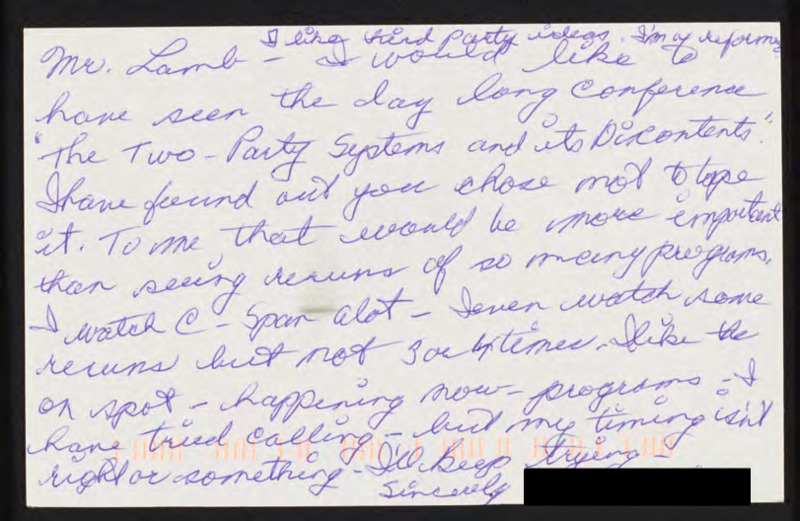 I like third party ideas. I'm a reformer
Mr. Lamb - I would like to
have seen the day long Conference
"The Two-Party Systems and its Discontents".
I have found out you chose not to tape
it. To me, that would be more important
than seeing reruns of so many programs.
I watch C-Span alot - I even watch some
reruns but not 3 or 4 times. I like the
on spot - happening now - programs - I
have tried calling - but my timing isn't
right or something - I'll keep trying -
Sincerely